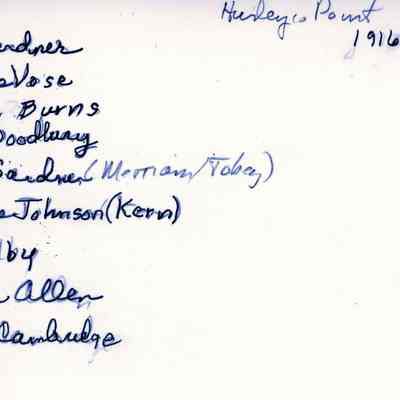 Hurley's Point
1916
ardner
eVose
Burns
Woodbury
Gardner (Merriam/Tobey)
e Johnson (Kern)
lby
Allen
Cambridge